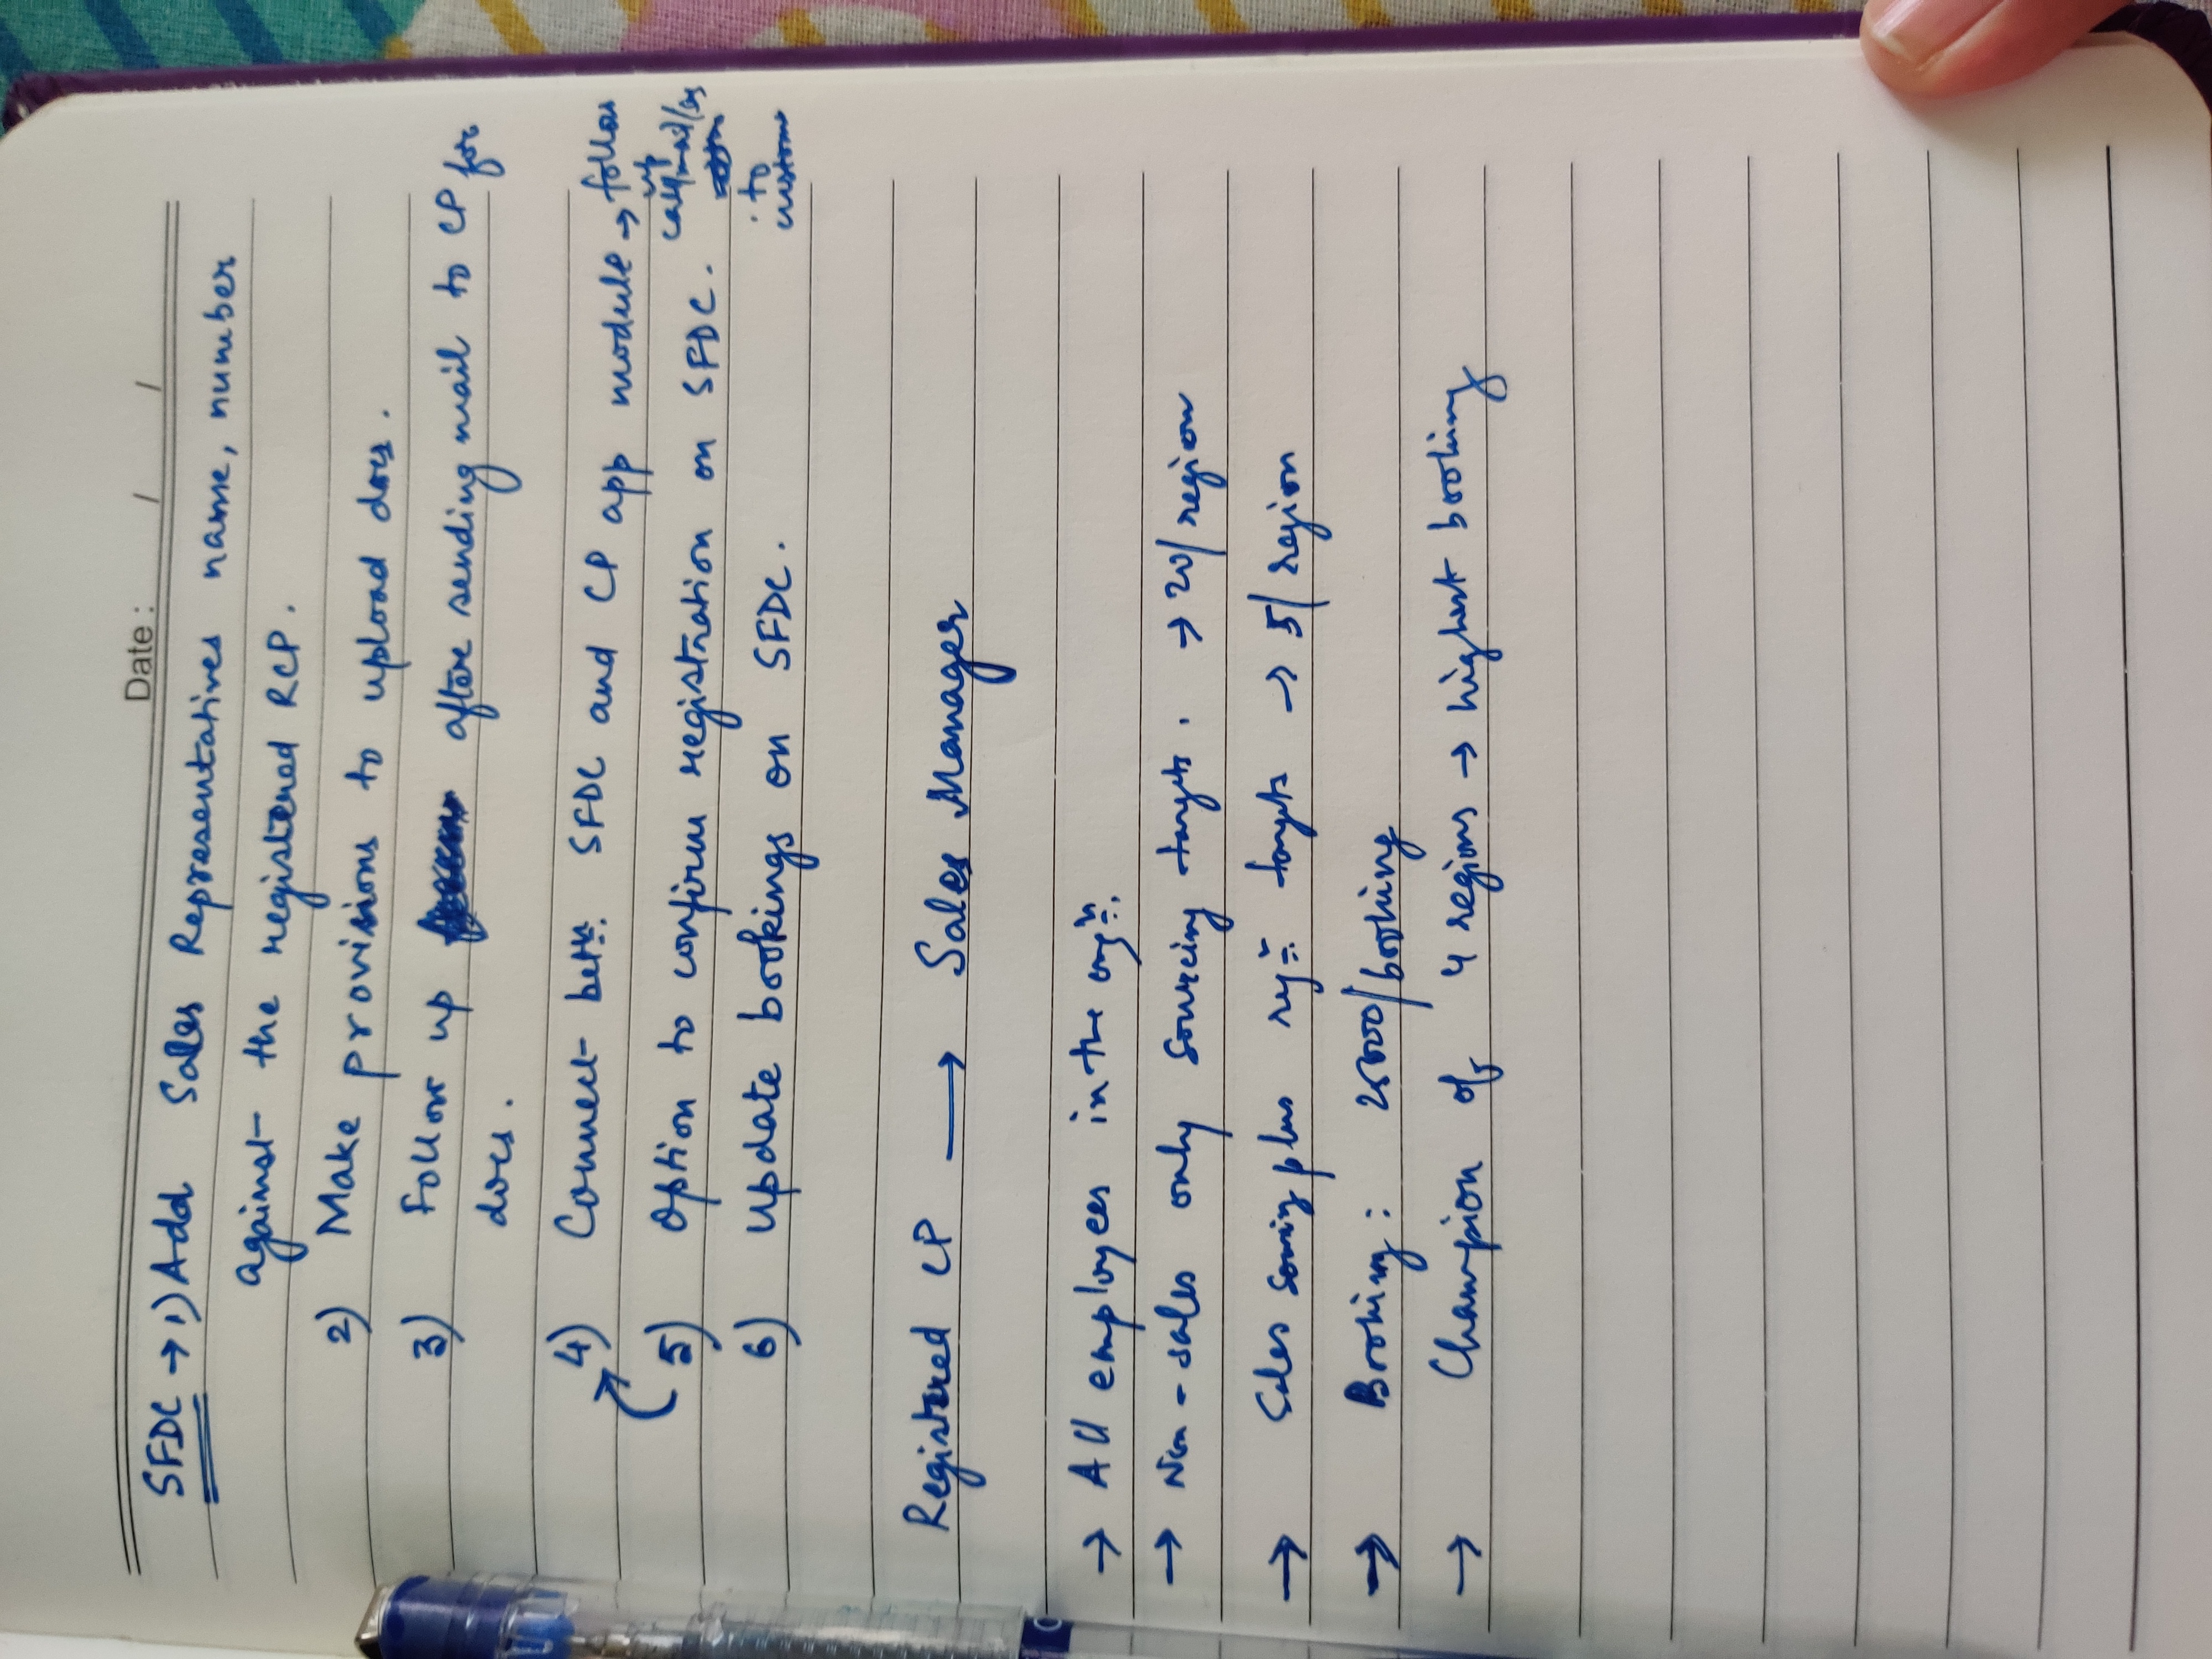 Date : / /
SFDC → 1) Add Sales Representatives name, number
against the registered RCP.
2) Make provisions to upload docs.
3) Follow up after sending mail to CP for
docs.
4) Connect betn. SFDC and CP app module → follow
up
call/mail/
5) Option to confirm registration on SFDC.
to
customer
6) Update bookings on SFDC.
Registered CP → Sales Manager
→ All employees in the orgn.
→ Non-sales only sourcing targets. → 20/region
→ Sales plus targets → 5/region
→ Booking: /booking
→ Champion of 4 regions → highest booking